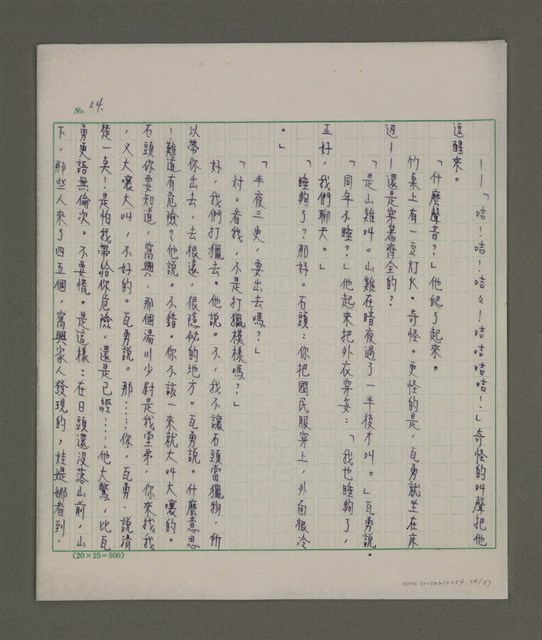 No. 24.
——「咭!咭!咭々!咭咭咭咭!」奇怪的叫聲把他
逗醒來。
「什麼聲音?」他爬了起來。
竹桌上有一豆灯火。奇怪。更怪的是,瓦勇就坐在床
邊——還是穿着齊全的?
「是山雞叫。山雞在暗夜過了一半後才叫。」瓦勇說。
「同年不睡?」他起來把外衣穿妥:「我也睡夠了,
正好,我們聊天。」
「睡夠了?那好。石頭:你把國民服穿上,外面很冷
。」
「半夜三更,要出去嗎?」
「对。看我,不是打獵模樣嗎?」
好,我們打獵去。他說。不,我不讓石頭當獵物,所
以帶你出去,去很遠,很隱祕的地方。瓦勇說。什麼意思
,難道有危險?他說。不錯。你不該一來就大叫大嚷的。
石頭你要知道,窩興,那個湯川少尉是我堂弟,你來找我
,又大嚷大叫,不好的。瓦勇說。那……你,瓦勇,說清
楚一点!是怕我帶給你危險,還是已經……他大驚,比瓦
勇更語無倫次。不要慌。是這樣:在日頭還沒落山前,山
下,那些人來了四五個,窩興家人發現的,娃媞娜看到,
(20×25=500)